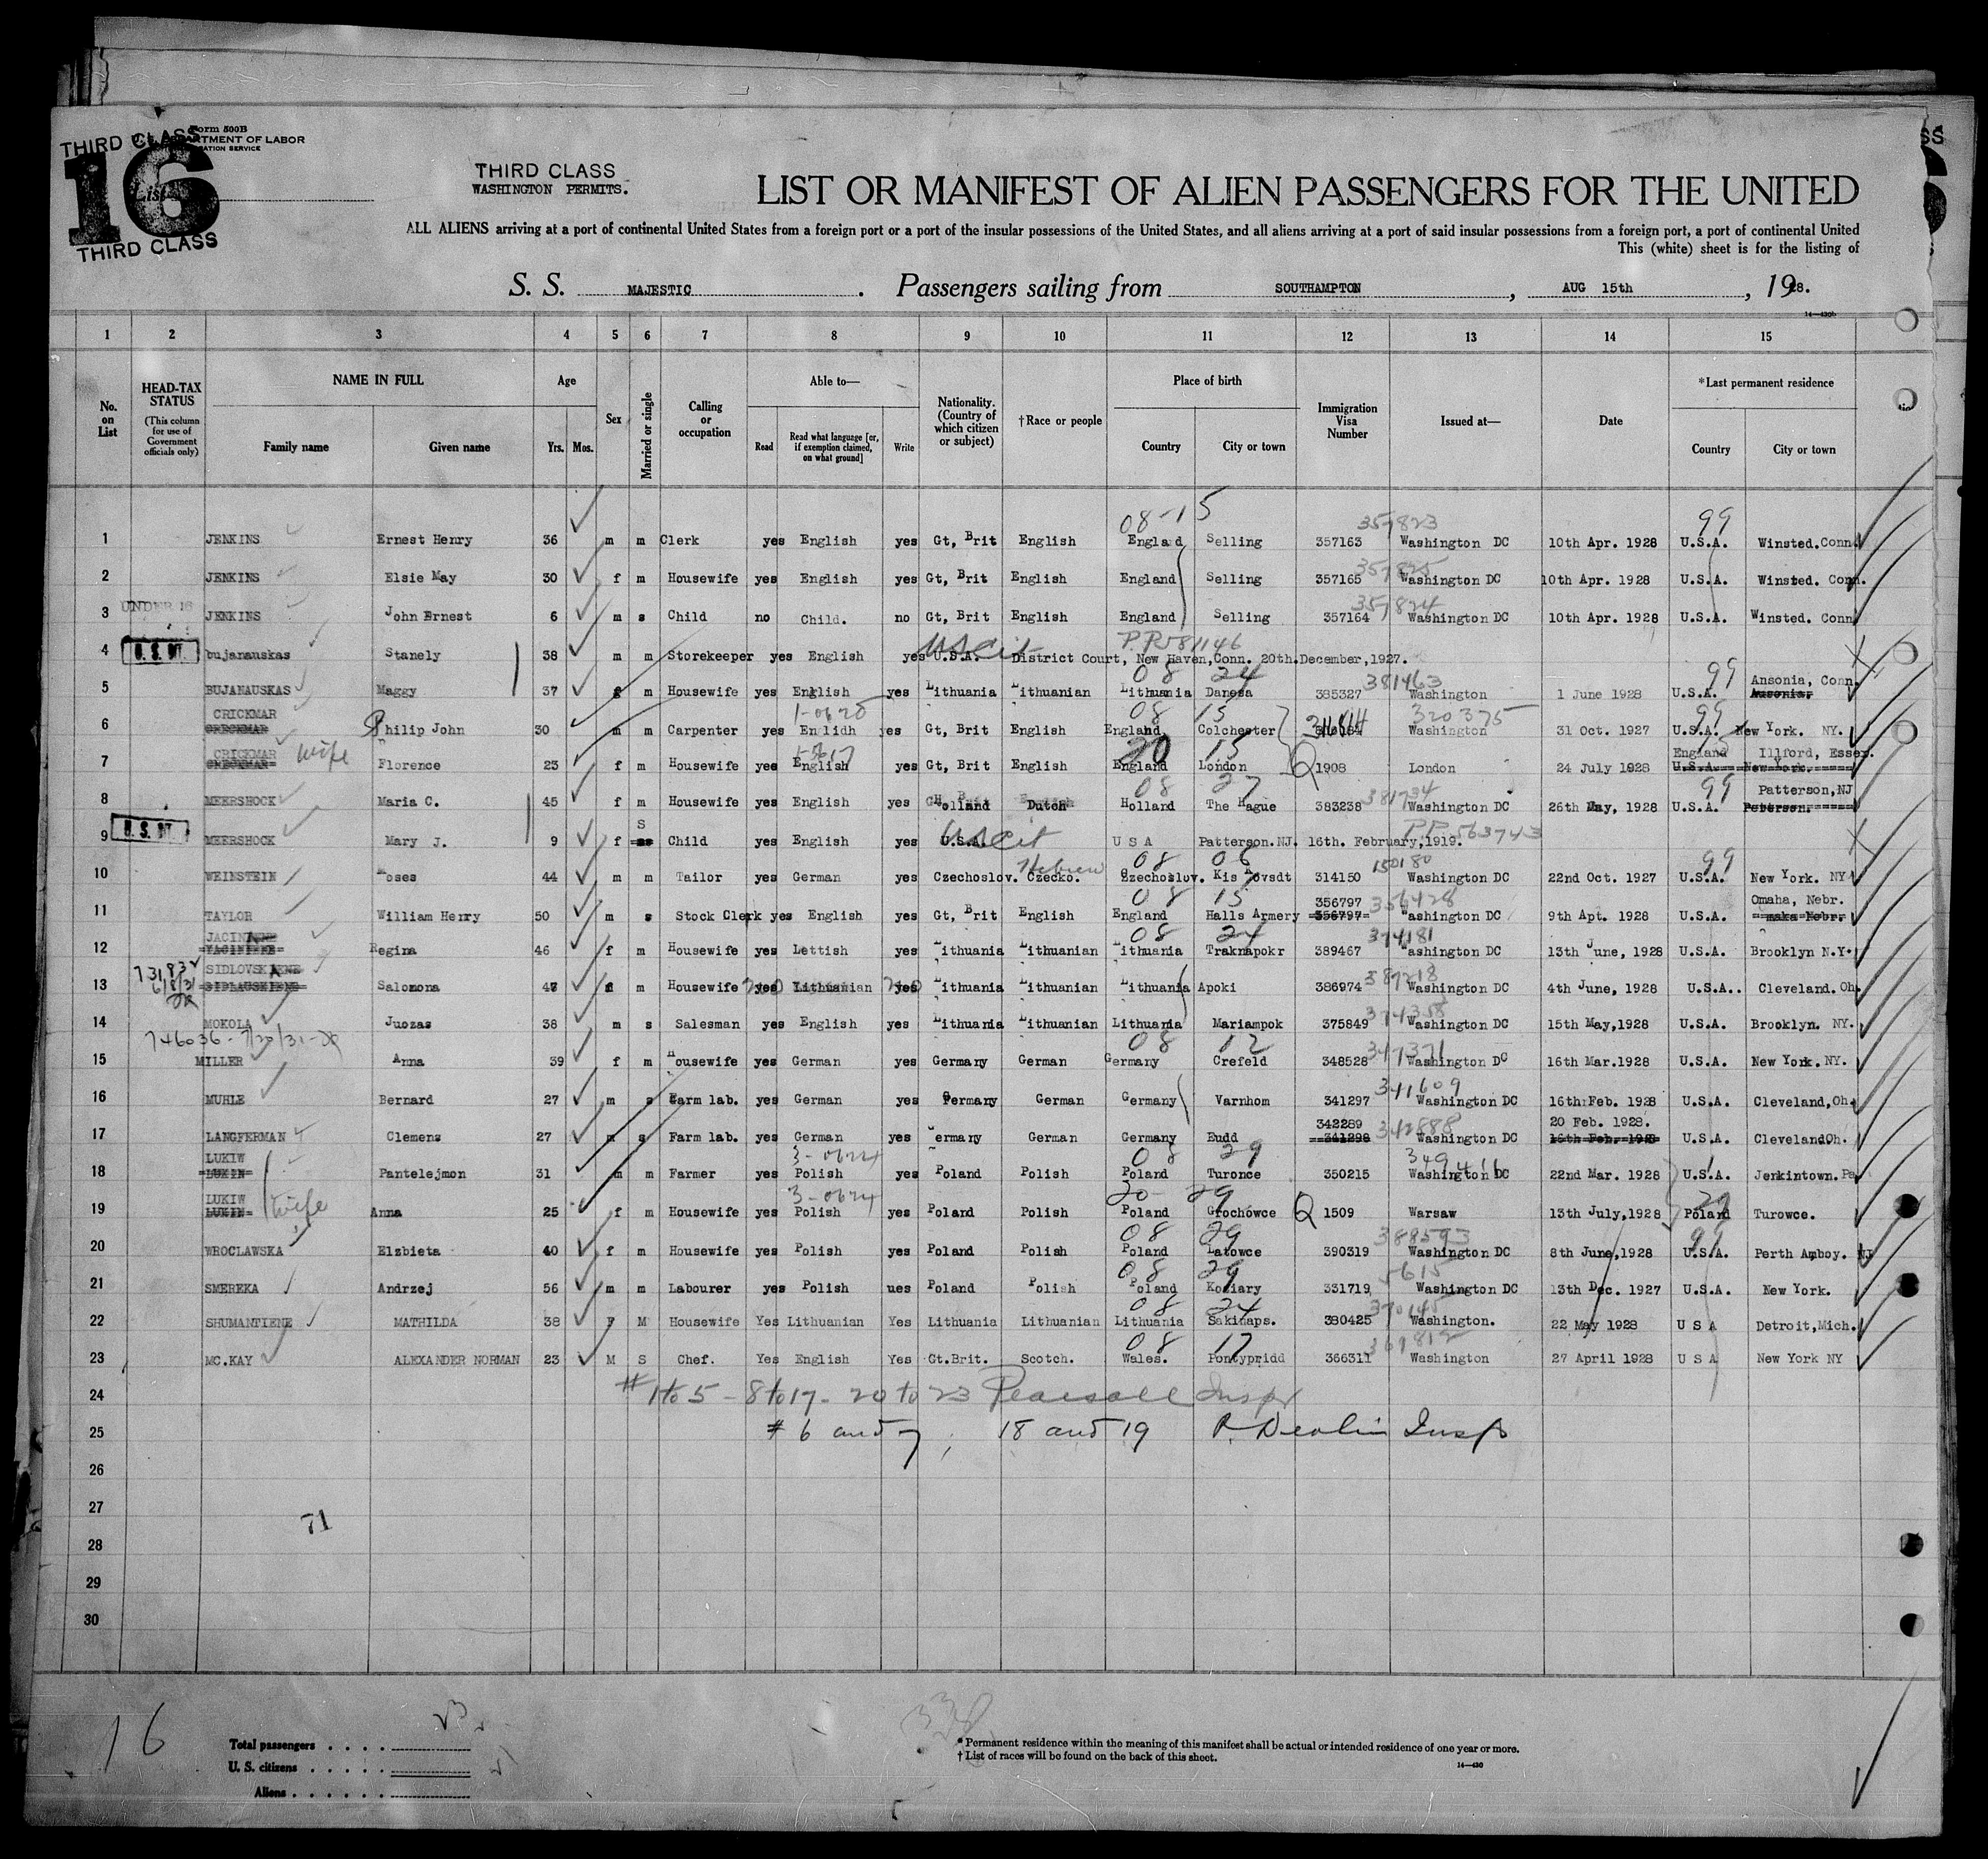 THIRD CLASS
Form 500B
DEPARTMENT OF LABOR
16
List
THIRD CLASS
THIRD CLASS
WASHINGTON PERMITS.
LIST OR MANIFEST OF ALIEN PASSENGERS FOR THE UNITED
ALL ALIENS arriving at a port of continental United States from a foreign port or a port of the insular possessions of the United States, and all aliens arriving at a port of said insular possessions from a foreign port, a port of continental United
This (white) sheet is for the listing of
S. S. MAJESTIC. Passengers sailing from SOUTHAMPTON, AUG 15th, 1928.
14—430b
1 2 3 4 5 6 7 8 9 10 11 12 13 14 15
No. on List
HEAD-TAX STATUS (This column for use of Government officials only)
NAME IN FULL
Family name Given name
Age
Yrs. Mos.
Sex
Married or single
Calling or occupation
Able to—
Read Read what language [or, if exemption claimed, on what ground] Write
Nationality. (Country of which citizen or subject)
†Race or people
Place of birth
Country City or town
Immigration Visa Number
Issued at—
Date
*Last permanent residence
Country City or town
08-15 357823 99
1 JENKINS Ernest Henry 36 m m Clerk yes English yes Gt, Brit English England Selling 357163 Washington DC 10th Apr. 1928 U.S.A. Winsted. Conn.
357825
2 JENKINS Elsie May 30 f m Housewife yes English yes Gt, Brit English England Selling 357165 Washington DC 10th Apr. 1928 U.S.A. Winsted. Conn.
UNDER 16 357824
3 JENKINS John Ernest 6 m s Child no Child. no Gt, Brit English England Selling 357164 Washington DC 10th Apr. 1928 U.S.A. Winsted. Conn
US Cit P.P. 581146
4 bujanauskas Stanely 38 m m Storekeeper yes English yes U.S.A. District Court, New Haven, Conn. 20th. December, 1927.
08 24 381463 99 Ansonia, Conn.
5 BUJANAUSKAS Maggy 37 f m Housewife yes English yes Lithuania Lithuanian Lithuania Danesa 385327 Washington 1 June 1928 U.S.A. Ansonia.
CRICKMAR 1-0620 08 15 320375 99
6 Philip John 30 m m Carpenter yes Enlidh yes Gt, Brit English England Colchester Washington 31 Oct. 1927 U.S.A. New York. NY.
CRICKMAR wife 20 15 England Illford, Essex.
7 Florence 23 f m Housewife yes English yes Gt, Brit English England London 1908 London 24 July 1928 U.S.A. New York.
08 27 381734 99 Patterson, NJ
8 MEERSHOCK Maria C. 45 f m Housewife yes English yes Holland Dutch Holland The Hague 383238 Washington DC 26th May, 1928 U.S.A. Peterson.
S US Cit P.P. 563743
9 MEERSHOCK Mary J. 9 f Child yes English yes U.S.A. U S A Patterson. NJ. 16th. February, 1919.
Hebrew 08 06 150180 99
10 WEINSTEIN Moses 44 m m Tailor yes German yes Czechoslov. Czecko. Czechoslov. Kis Tovsdt 314150 Washington DC 22nd Oct. 1927 U.S.A. New York. NY
08 15 356797 356428 Omaha, Nebr.
11 TAYLOR William Henry 50 m s Stock Clerk yes English yes Gt, Brit English England Halls Armery 356797 Washington DC 9th Apt. 1928 U.S.A.
08 24 374181
12 Regina 46 f m Housewife yes Lettish yes Lithuania Lithuanian Lithuania Traknapokr 389467 Washington DC 13th June, 1928 U.S.A. Brooklyn N.Y.
SIDLOVSK 387218
13 SIDLAUSKIENE Salomona 47 f m Housewife yes Lithuanian yes Lithuania Lithuanian Lithuania Apoki 386974 Washington DC 4th June, 1928 U.S.A.. Cleveland. Oh.
14 MOKOLA Juozas 38 m s Salesman yes English yes Lithuania Lithuanian Lithuania Mariampok 375849 Washington DC 15th May, 1928 U.S.A. Brooklyn. NY.
746036 - 7/20/31 08 12 347371
15 MILLER Anna 39 f m Housewife yes German yes Germany German Germany Crefeld 348528 Washington DC 16th Mar. 1928 U.S.A. New York. NY.
341609
16 MUHLE Bernard 27 m s Farm lab. yes German yes Germany German Germany Varnhom 341297 Washington DC 16th Feb. 1928 U.S.A. Cleveland, Oh.
342289 342888 20 Feb. 1928.
17 LANGFERMAN Clemens 27 m s Farm lab. yes German yes ermany German Germany Eudd 341298 Washington DC 16th Feb. 1928 U.S.A. Cleveland Oh.
LUKIW 3-0624 08 29 349416
18 LUKIN Pantelejmon 31 m m Farmer yes Polish yes Poland Polish Poland Turonce 350215 Washington DC 22nd Mar. 1928 U.S.A. Jenkintown. Pa
LUKIW wife 3-0624 20 29 29
19 LUKIN Anna 25 f m Housewife yes Polish yes Poland Polish Poland Grochowce 1509 Warsaw 13th July, 1928 Poland Turowce.
08 29 388593 99
20 WROCLAWSKA Elzbieta 40 f m Housewife yes Polish yes Poland Polish Poland Latowce 390319 Washington DC 8th June, 1928 U.S.A. Perth Amboy. NJ
08 29 5615
21 SMEREKA Andrzej 56 m m Labourer yes Polish ues Poland Polish Poland Koziary 331719 Washington DC 13th Dec. 1927 U.S.A. New York.
08 24 370145
22 SHUMANTIENE MATHILDA 38 F M Housewife Yes Lithuanian Yes Lithuania Lithuanian Lithuania Sakinaps. 380425 Washington. 22 May 1928 U S A Detroit, Mich.
08 17 369812
23 MC.KAY ALEXANDER NORMAN 23 M S Chef. Yes English Yes Gt.Brit. Scotch. Wales. Pontypridd 366311 Washington 27 April 1928 U S A New York NY
24 #1 to 5 - 8 to 17 - 20 to 23 Pearsall Inspr
25 # 6 and 7, 18 and 19 P. Devlin Insp
26
27
71
28
29
30
16
Total passengers
U. S. citizens
Aliens
* Permanent residence within the meaning of this manifest shall be actual or intended residence of one year or more.
† List of races will be found on the back of this sheet.
14—430